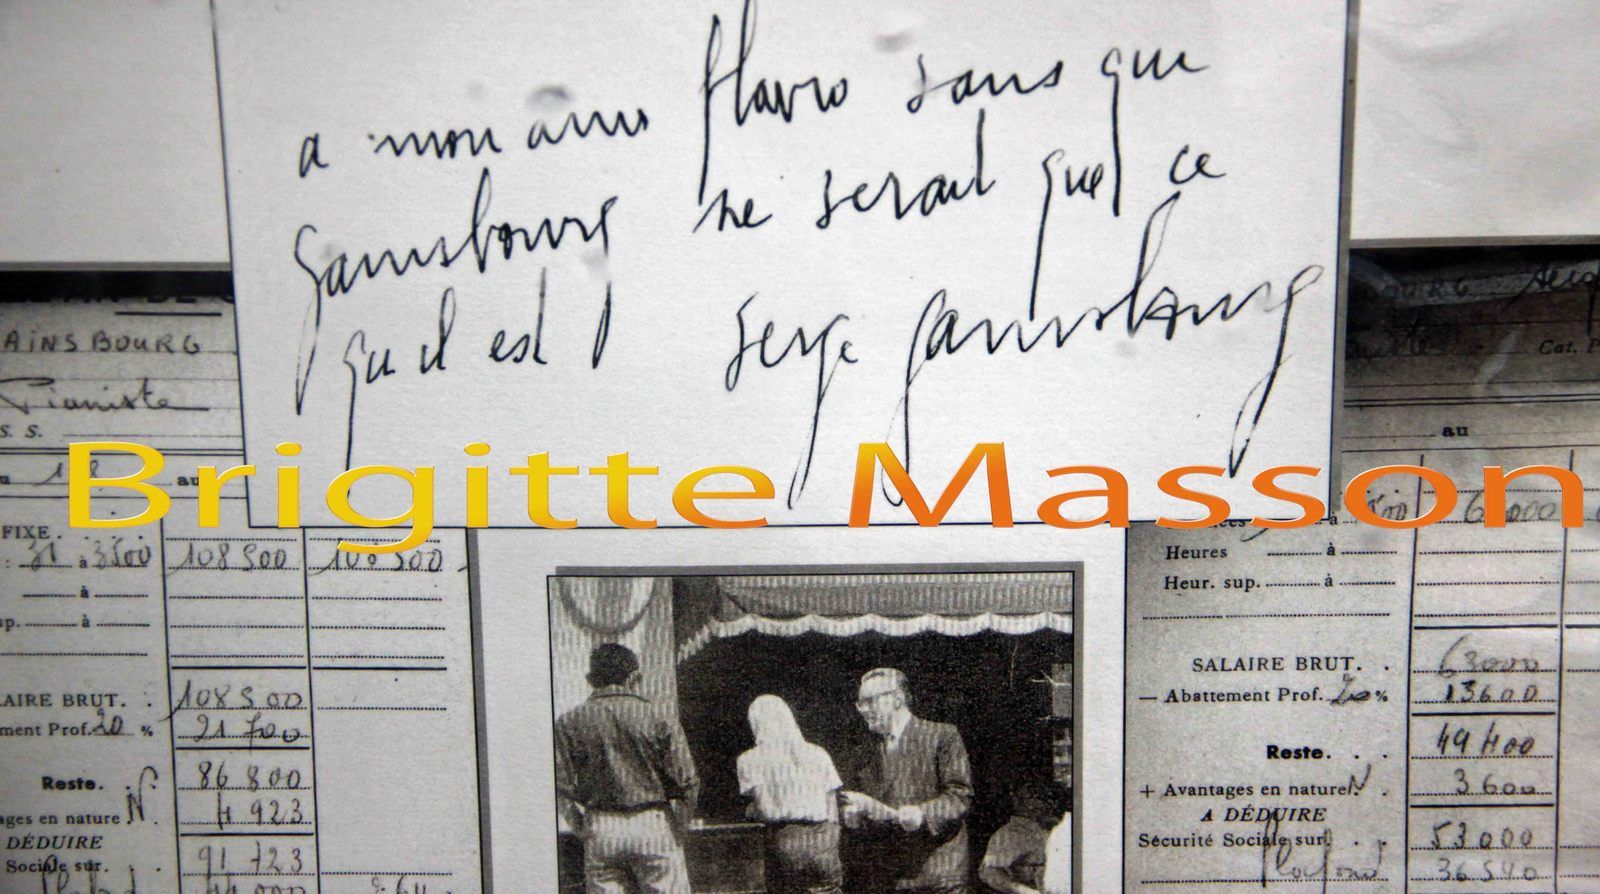 a mon ami flavio sans qui
Gainsbourg ne serait que ce
qu'il est
Serge Gainsbourg
Brigitte Masson
AINSBOURG
Pianiste
S. S.
au
FIXE.
31 à 3500 108 500 108 500
à
à
AIRE BRUT. . 108 500
ment Prof. 20 % 21 700
Reste. . 86 800
ages en nature N. 4 923
DÉDUIRE
Sociale sur. . 91 723
Cat. P
au
à 63000
Heures à
Heur. sup. à
SALAIRE BRUT. . 63000
— Abattement Prof. 20 % 13600
Reste. . . 49 400
+ Avantages en nature N. 3 600
A DÉDUIRE
Sécurité Sociale sur. . 53 000
Plafond 36 540